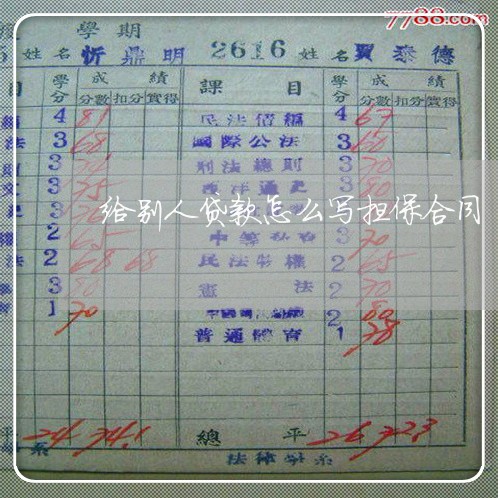 7788.com
學期
5 姓名 忻鼎明 2616 姓名 賈泰德
目 學分 成績 課目 學分 成績
分數 扣分 實得 分數 扣分 實得
4 81 民法債編 4 67
法 3 68 國際公法 3 60
3 刑法總則 3 70
3 75 西洋通史 3 80
給别人贷款怎么写担保合同
2 65 3 70
法 2 68 68 民法物權 2 65
3 80 憲法 2 70
1 70 2 80
普通體育 1 78
平 24 74.1 總平 26 72.3
系 法律學系